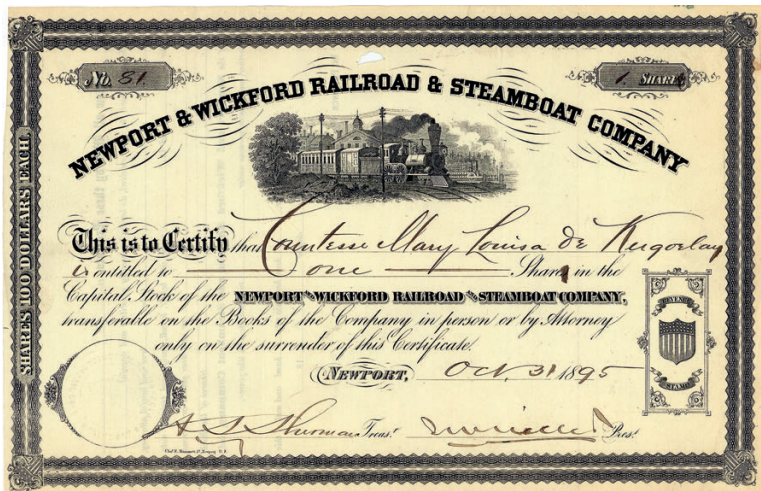 No. 81
1 SHARE
NEWPORT & WICKFORD RAILROAD & STEAMBOAT COMPANY
SHARES 100 DOLLARS EACH.
This is to Certify that Countesse Mary Louisa de Kergorlay
is entitled to one Share in the
Capital Stock of the NEWPORT AND WICKFORD RAILROAD AND STEAMBOAT COMPANY,
transferable on the Books of the Company in person or by Attorney
only on the surrender of this Certificate.
NEWPORT, Oct. 31 1895
Sherman Treasr.
Prest.
STAMP